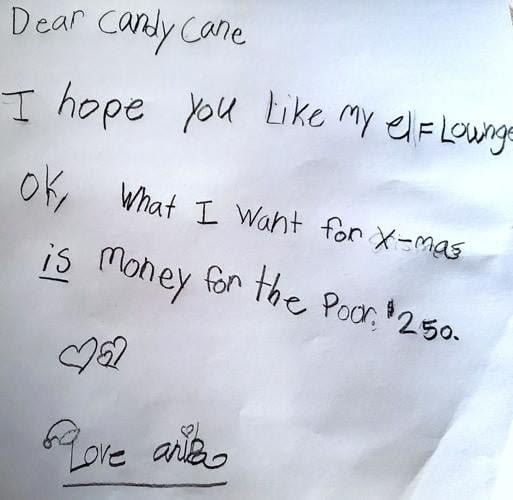 Dear Candy Cane
I hope you Like My elF Lounge
OK, What I Want for X-mas
is Money for the Poor. $250.
Love